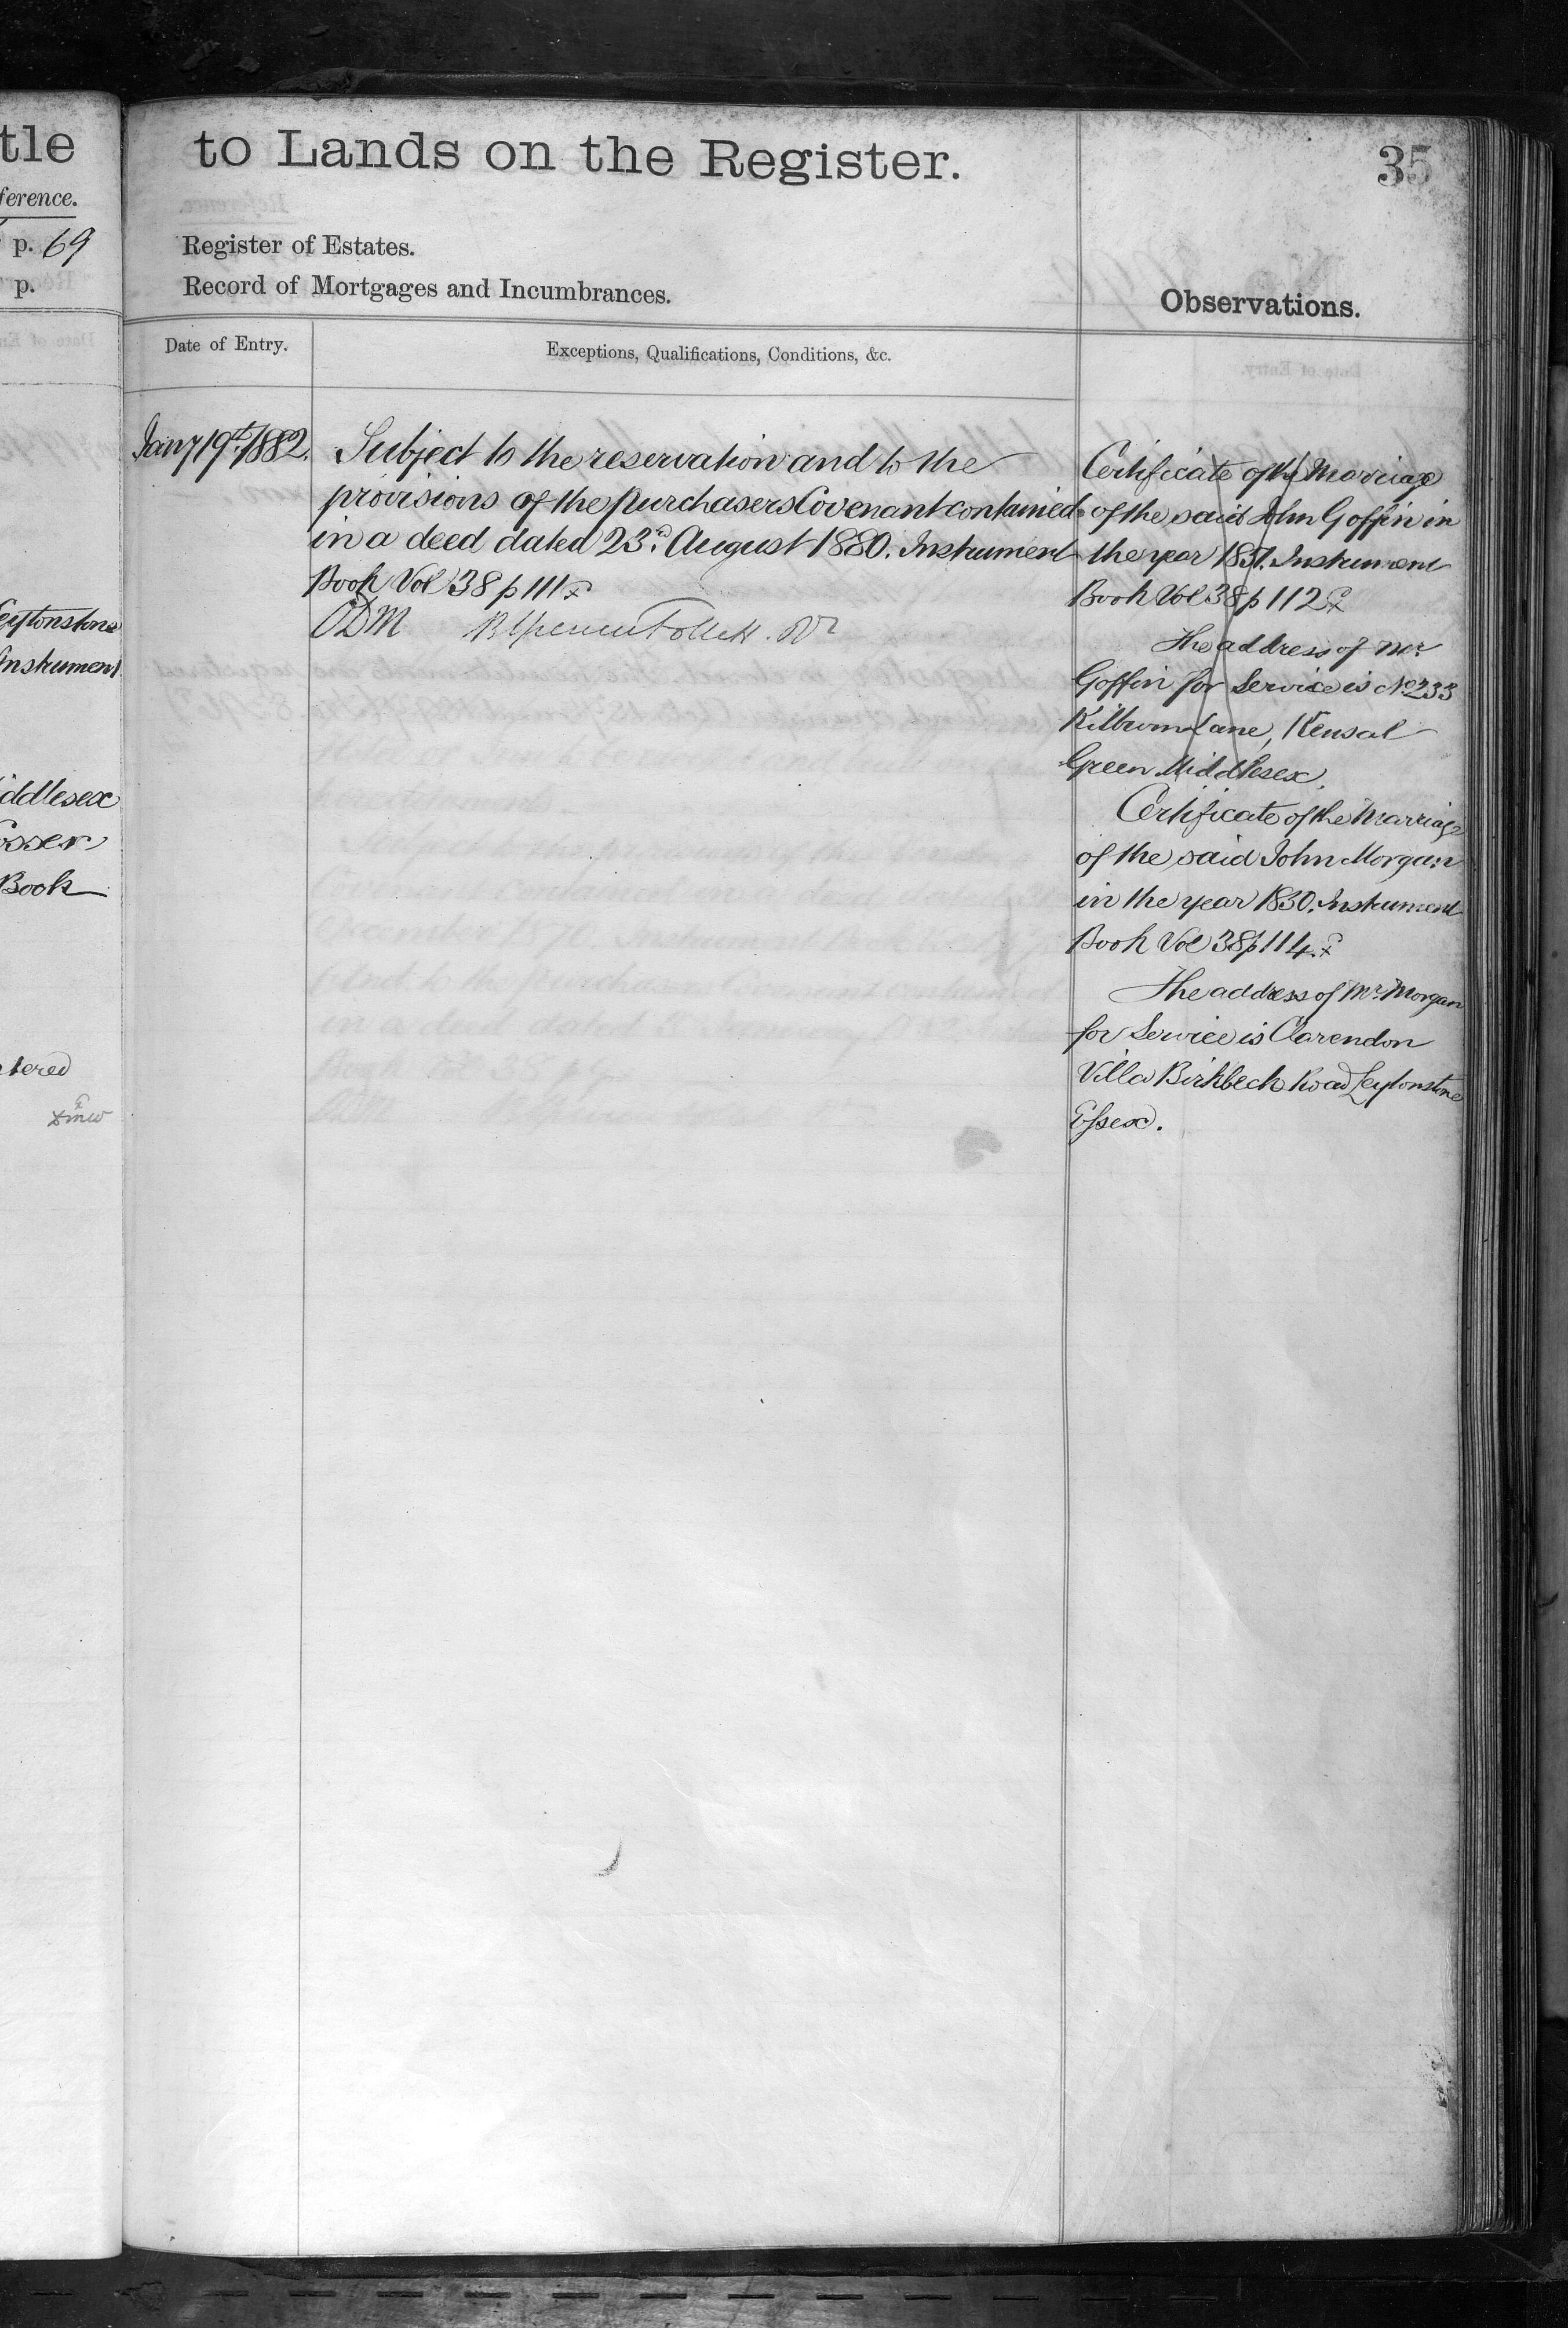 tle
ference.
p. 69
p.
Leytonstone
Instrument
iddlesex
osser
Book
tered
to Lands on the Register.
35
Register of Estates.
Record of Mortgages and Incumbrances.
Observations.
Date of Entry.
Exceptions, Qualifications, Conditions, &c.
Jany 19th/1882.
Subject to the reservation and to the
provisions of the Purchasers Covenant contained
in a deed dated 23rd August 1880. Instrument
Book Vol 38 p 111
ODM
Follett
Certificate of the Marriage
of the said John Goffin in
the year 1851. Instrument
Book Vol 38 p 112
The address of Mr
Goffin for Service is No 233
Kilburn Lane, Kensal
Green Middlesex.
Certificate of the Marriage
of the said John Morgan
in the year 1830. Instrument
Book Vol 38 p 114
The address of Mr Morgan
for Service is Clarendon
Villa Birkbeck Road Leytonstone
Essex.